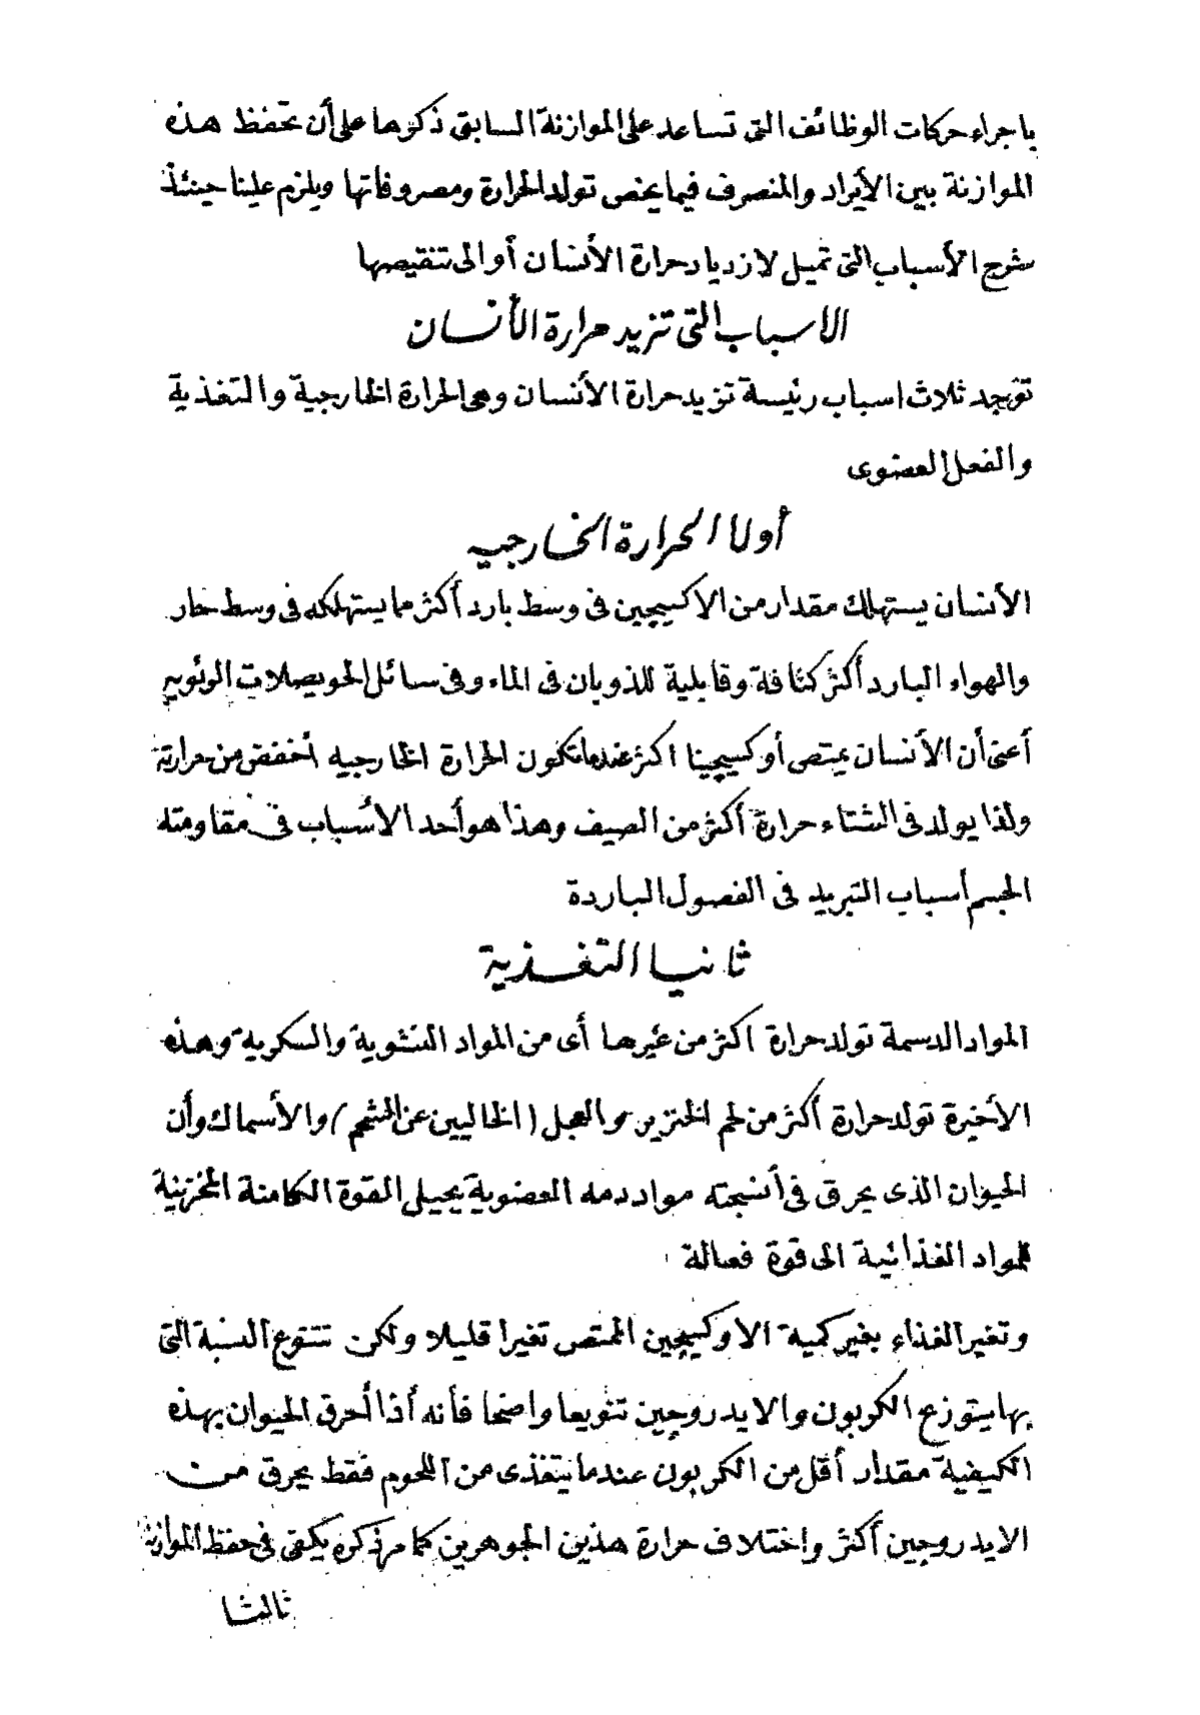 باجراء حركات الوظائف التى تساعد على الموازنة السابق ذكرها على أن تحفظ هذه
الموازنة بين الأيراد والمنصرف فيما يخص تولد الحرارة ومصروفاتها ويلزم علينا حينئذ
شرح الأسباب التى تميل لازدياد حرارة الأنسان أو الى تنقيصها
الاسباب التى تزيد حرارة الأنسان
توجد ثلاث اسباب رئيسة تزيد حرارة الأنسان وهى الحرارة الخارجية والتغذية
والفعل العضوى
أولا الحرارة الخارجيه
الأنسان يستهلك مقدار من الاكسيجين فى وسط بارد أكثر مما يستهلكه فى وسط حار
والهواء البارد أكثر كثافة وقابلية للذوبان فى الماء وفى سائل الحويصلات الرئويه
أعنى أن الأنسان يمتص أوكسيجينا اكثر عندما تكون الحرارة الخارجيه أخفض من حرارته
ولذا يولد فى الشتاء حرارة أكثر من الصيف وهذا هو أحد الأسباب فى مقاومته
الجسم أسباب التبريد فى الفصول الباردة
ثانيا التغذية
المواد الدسمة تولد حرارة اكثر من غيرها أى من المواد النشوية والسكرية وهذه
الأخيرة تولد حرارة أكثر من لحم الخنزير والعجل (الخاليين عن الشحم) والأسماك وأن
الحيوان الذى يحرق فى أنسجته مواد دمه العضوية يحيل القوة الكامنة المخزنية
للمواد الغذائية الى قوة فعالة
وتغير الغذاء بغير كمية الاوكسيجين الممتص تغيرا قليلا ولكن تتنوع النسبة التى
بها يتوزع الكربون والايدروجين تنويعا واضحا فأنه أذا أحرق الحيوان بهذه
الكيفية مقدار أقل من الكربون عندما يتغذى من اللحوم فقط يحرق من
الايدروجين أكثر واختلاف حرارة هذين الجوهرين كما مر ذكره يكفى فى حفظ الموازنة
ثالثا